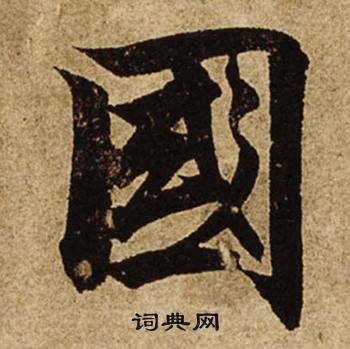 國
词典网